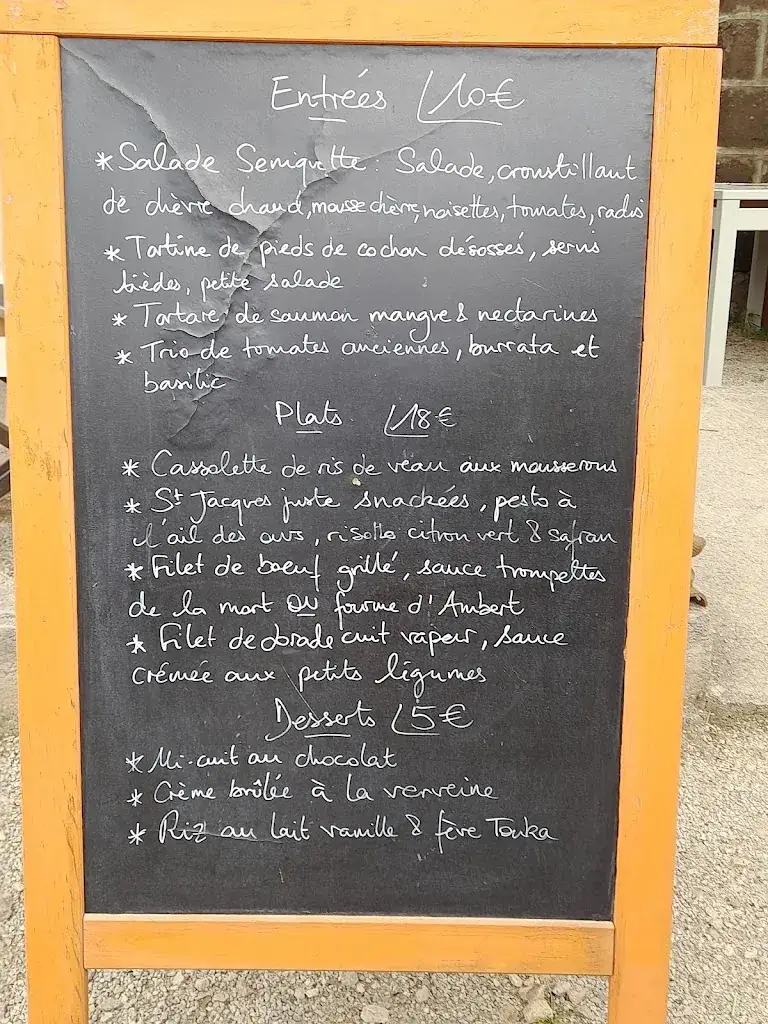 Entrées 10€
* Salade Semiguette. Salade, croustillant
de chèvre chaud, mousse chèvre, noisettes, tomates, radis
* Tartine de pieds de cochon désossés, servis
tièdes, petite salade
* Tartare de saumon mangue & nectarines
* Trio de tomates anciennes, burrata et
basilic
Plats 18€
* Cassolette de ris de veau aux mousserons
* St Jacques juste snackées, pesto à
l'ail des ours, risotto citron vert & safran
* Filet de boeuf grillé, sauce trompettes
de la mort OU fourme d'Ambert
* Filet de dorade cuit vapeur, sauce
crémée aux petits légumes
Desserts 5€
* Mi-cuit au chocolat
* Crème brûlée à la verveine
* Riz au lait vanille & fève Tonka